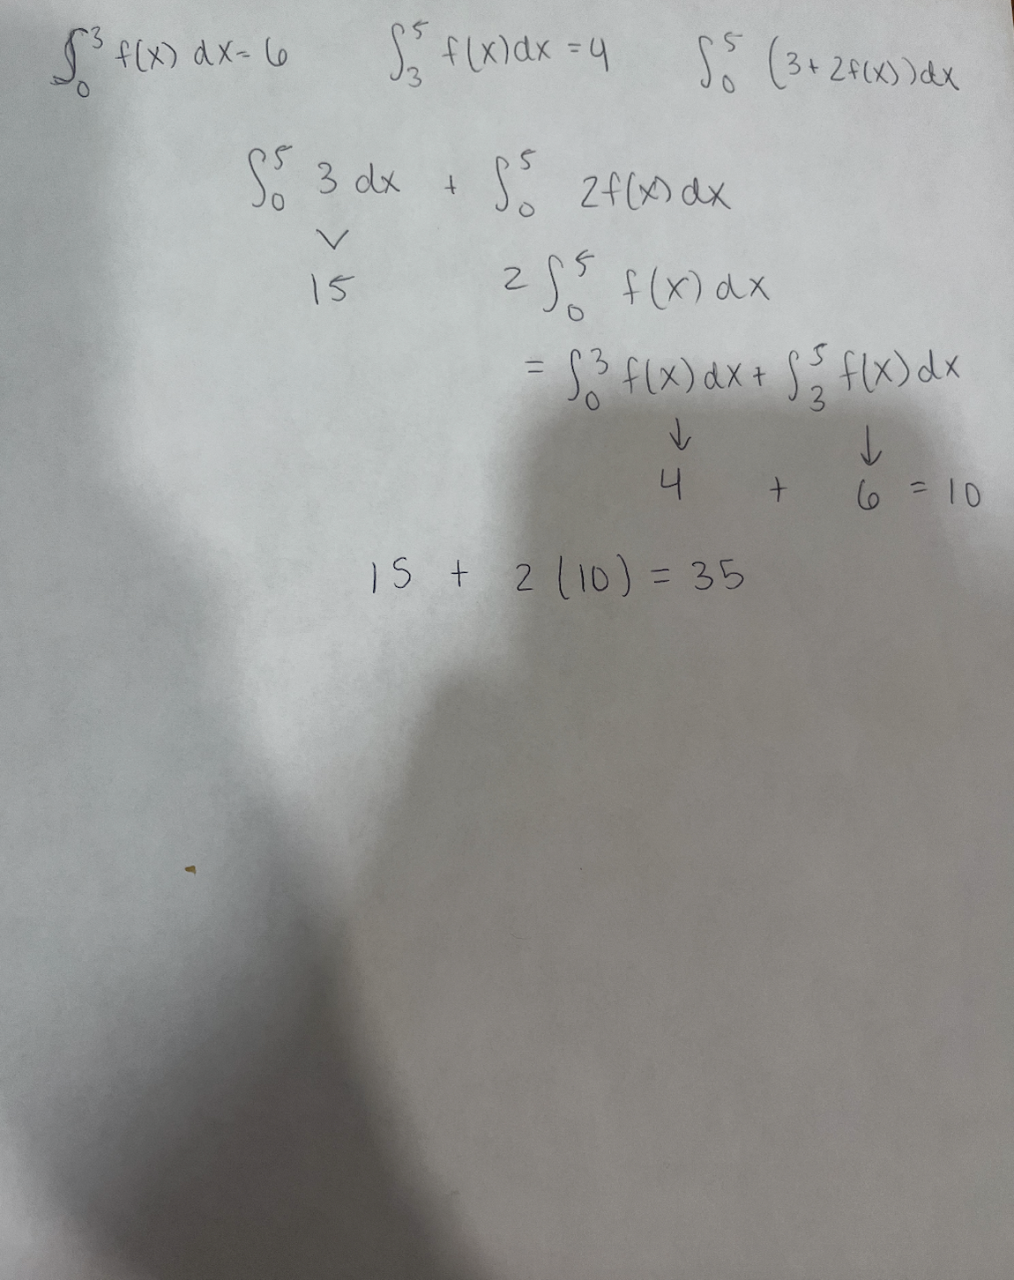 ∫₀³ f(x) dx = 6 ∫₃⁵ f(x)dx = 4 ∫₀⁵ (3 + 2f(x))dx
∫₀⁵ 3 dx + ∫₀⁵ 2f(x) dx
15 2∫₀⁵ f(x) dx
= ∫₀³ f(x) dx + ∫₃⁵ f(x) dx
↓ ↓
4 + 6 = 10
15 + 2(10) = 35